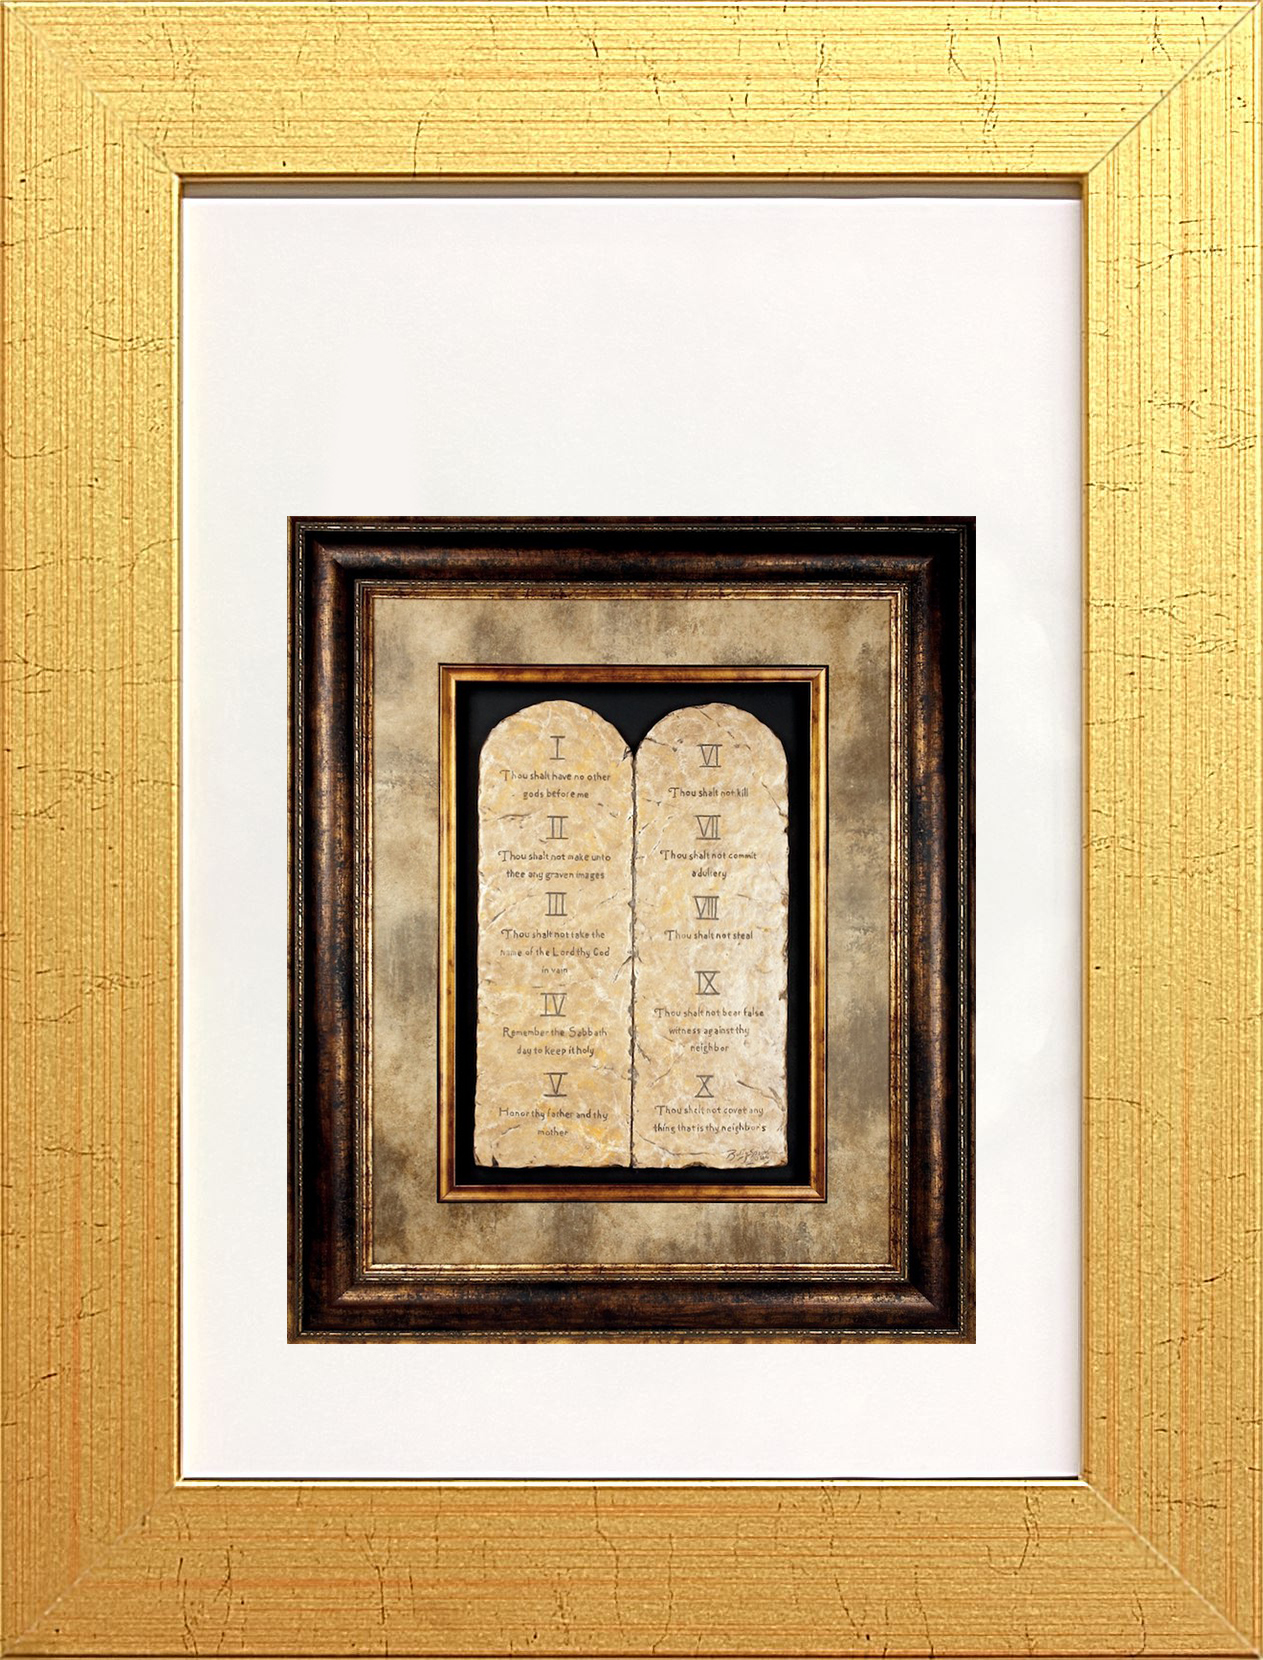 I
Thou shalt have no other
gods before me
II
Thou shalt not make unto
thee any graven images
III
Thou shalt not take the
name of the Lord thy God
in vain
IV
Remember the Sabbath
day to keep it holy
V
Honor thy father and thy
mother
VI
Thou shalt not kill
VII
Thou shalt not commit
adultery
VIII
Thou shalt not steal
IX
Thou shalt not bear false
witness against thy
neighbor
X
Thou shalt not covet any
thing that is thy neighbor's